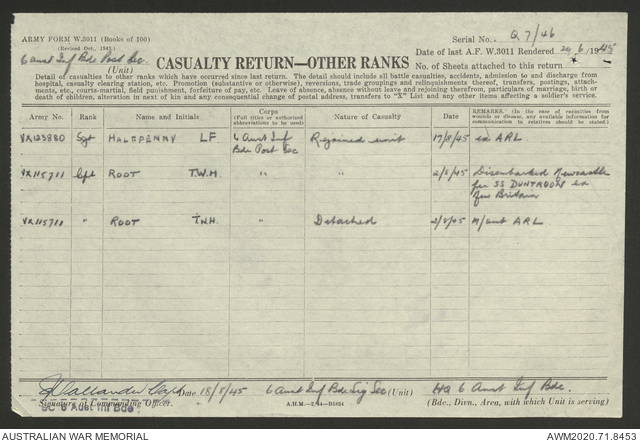 ARMY FORM W.3011 (Books of 100)
(Revised Oct., 1942.)
Serial No. Q 7/46
6 Aust Inf Bde Post Sec.
(Unit)
Date of last A.F. W.3011 Rendered 29/6/1945
CASUALTY RETURN—OTHER RANKS
No. of Sheets attached to this return
Detail of casualties to other ranks which have occurred since last return. The detail should include all battle casualties, accidents, admission to and discharge from
hospital, casualty clearing station, etc. Promotion (substantive or otherwise), reversions, trade groupings and relinquishments thereof, transfers, postings, attach-
ments, etc., courts-martial, field punishment, forfeiture of pay, etc. Leave of absence, absence without leave and rejoining therefrom, particulars of marriage, birth or
death of children, alteration in next of kin and any consequential change of postal address, transfers to "X" List and any other items affecting a soldier's service.
Army No. Rank Name and Initials Corps (Full titles or authorised abbreviations to be used) Nature of Casualty Date REMARKS. (In the case of casualties from wounds or disease, any available information for communication to relatives should be stated.)
VX123880 Sgt HALFPENNY LF 6 Aust Inf Bde Post Sec Rejoined unit 17/8/45 ex ARL
VX115711 Cpl ROOT T.W.H. " " 2/8/45 Disembarked Newcastle per SS DUNTROON ex New Britain
VX115711 " ROOT T.W.H. " Detached 2/8/45 m/out ARL
Callander Capt 18/8/45 6 Aust Inf Bde Sig Sec (Unit) HQ 6 Aust Inf Bde.
Signature of Commanding Officer.
SC 6 Aust Inf Bde
A.H.M.
(Bde., Divn., Area, with which Unit is serving)
AUSTRALIAN WAR MEMORIAL
AWM2020.71.8453